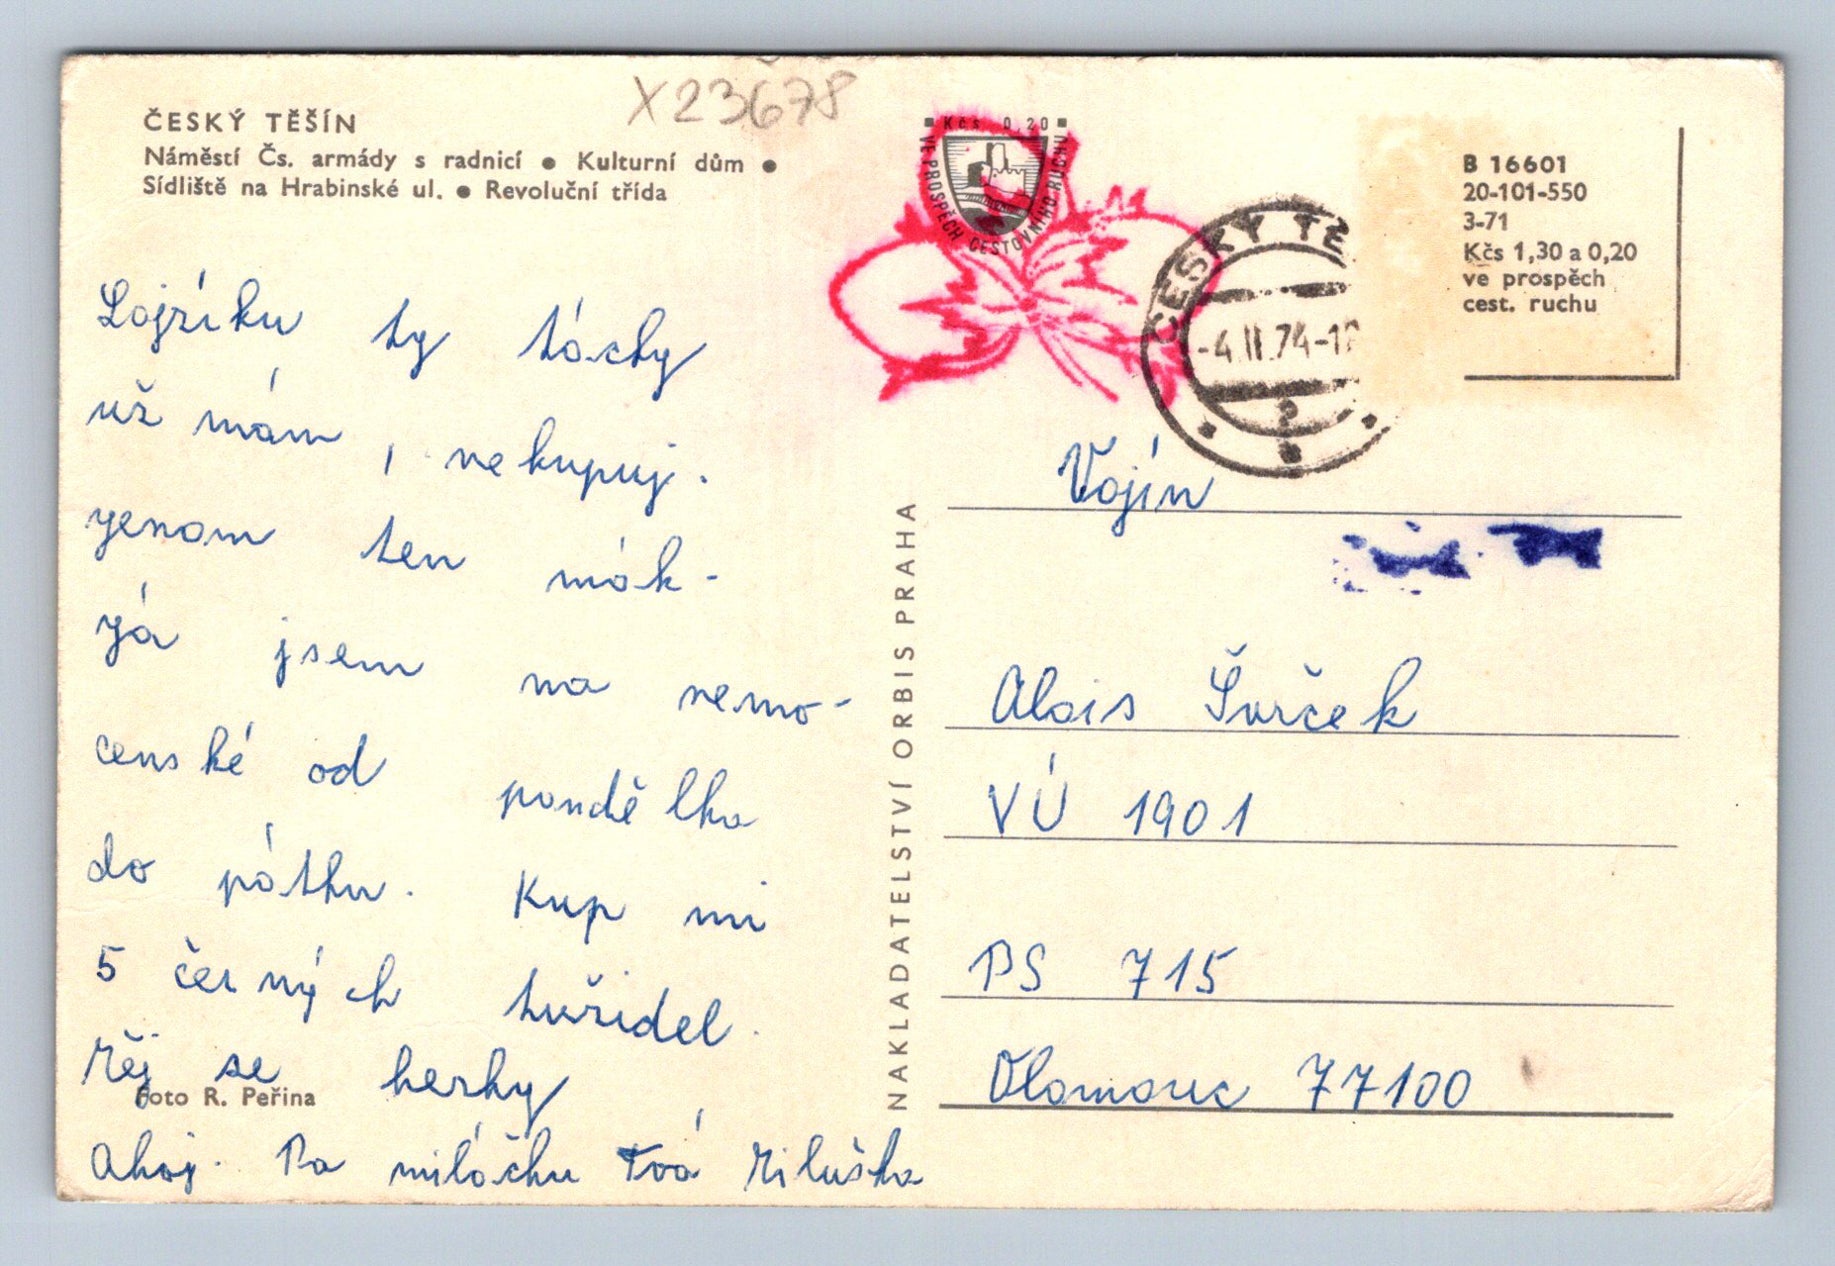 X23678
ČESKÝ TĚŠÍN
Náměstí Čs. armády s radnicí • Kulturní dům •
Sídliště na Hrabinské ul. • Revoluční třída
Kčs 0,20
VE PROSPĚCH CESTOVNÍHO RUCHU
ČESKÝ TĚ
-4.II.74-1
B 16601
20-101-550
3-71
Kčs 1,30 a 0,20
ve prospěch
cest. ruchu
Lojzíku ty tácky
už mám, nekupuj.
jenom ten mák-
já jsem na nemo-
censké od pondělka
do pátku. Kup mi
5 černých tužidel.
Měj se hezky
Foto R. Peřina
Ahoj. Pa miláčku Tvá Miluška
NAKLADATELSTVÍ ORBIS PRAHA
Vojín
Alois Šurček
VÚ 1901
PS 715
Olomouc 77100